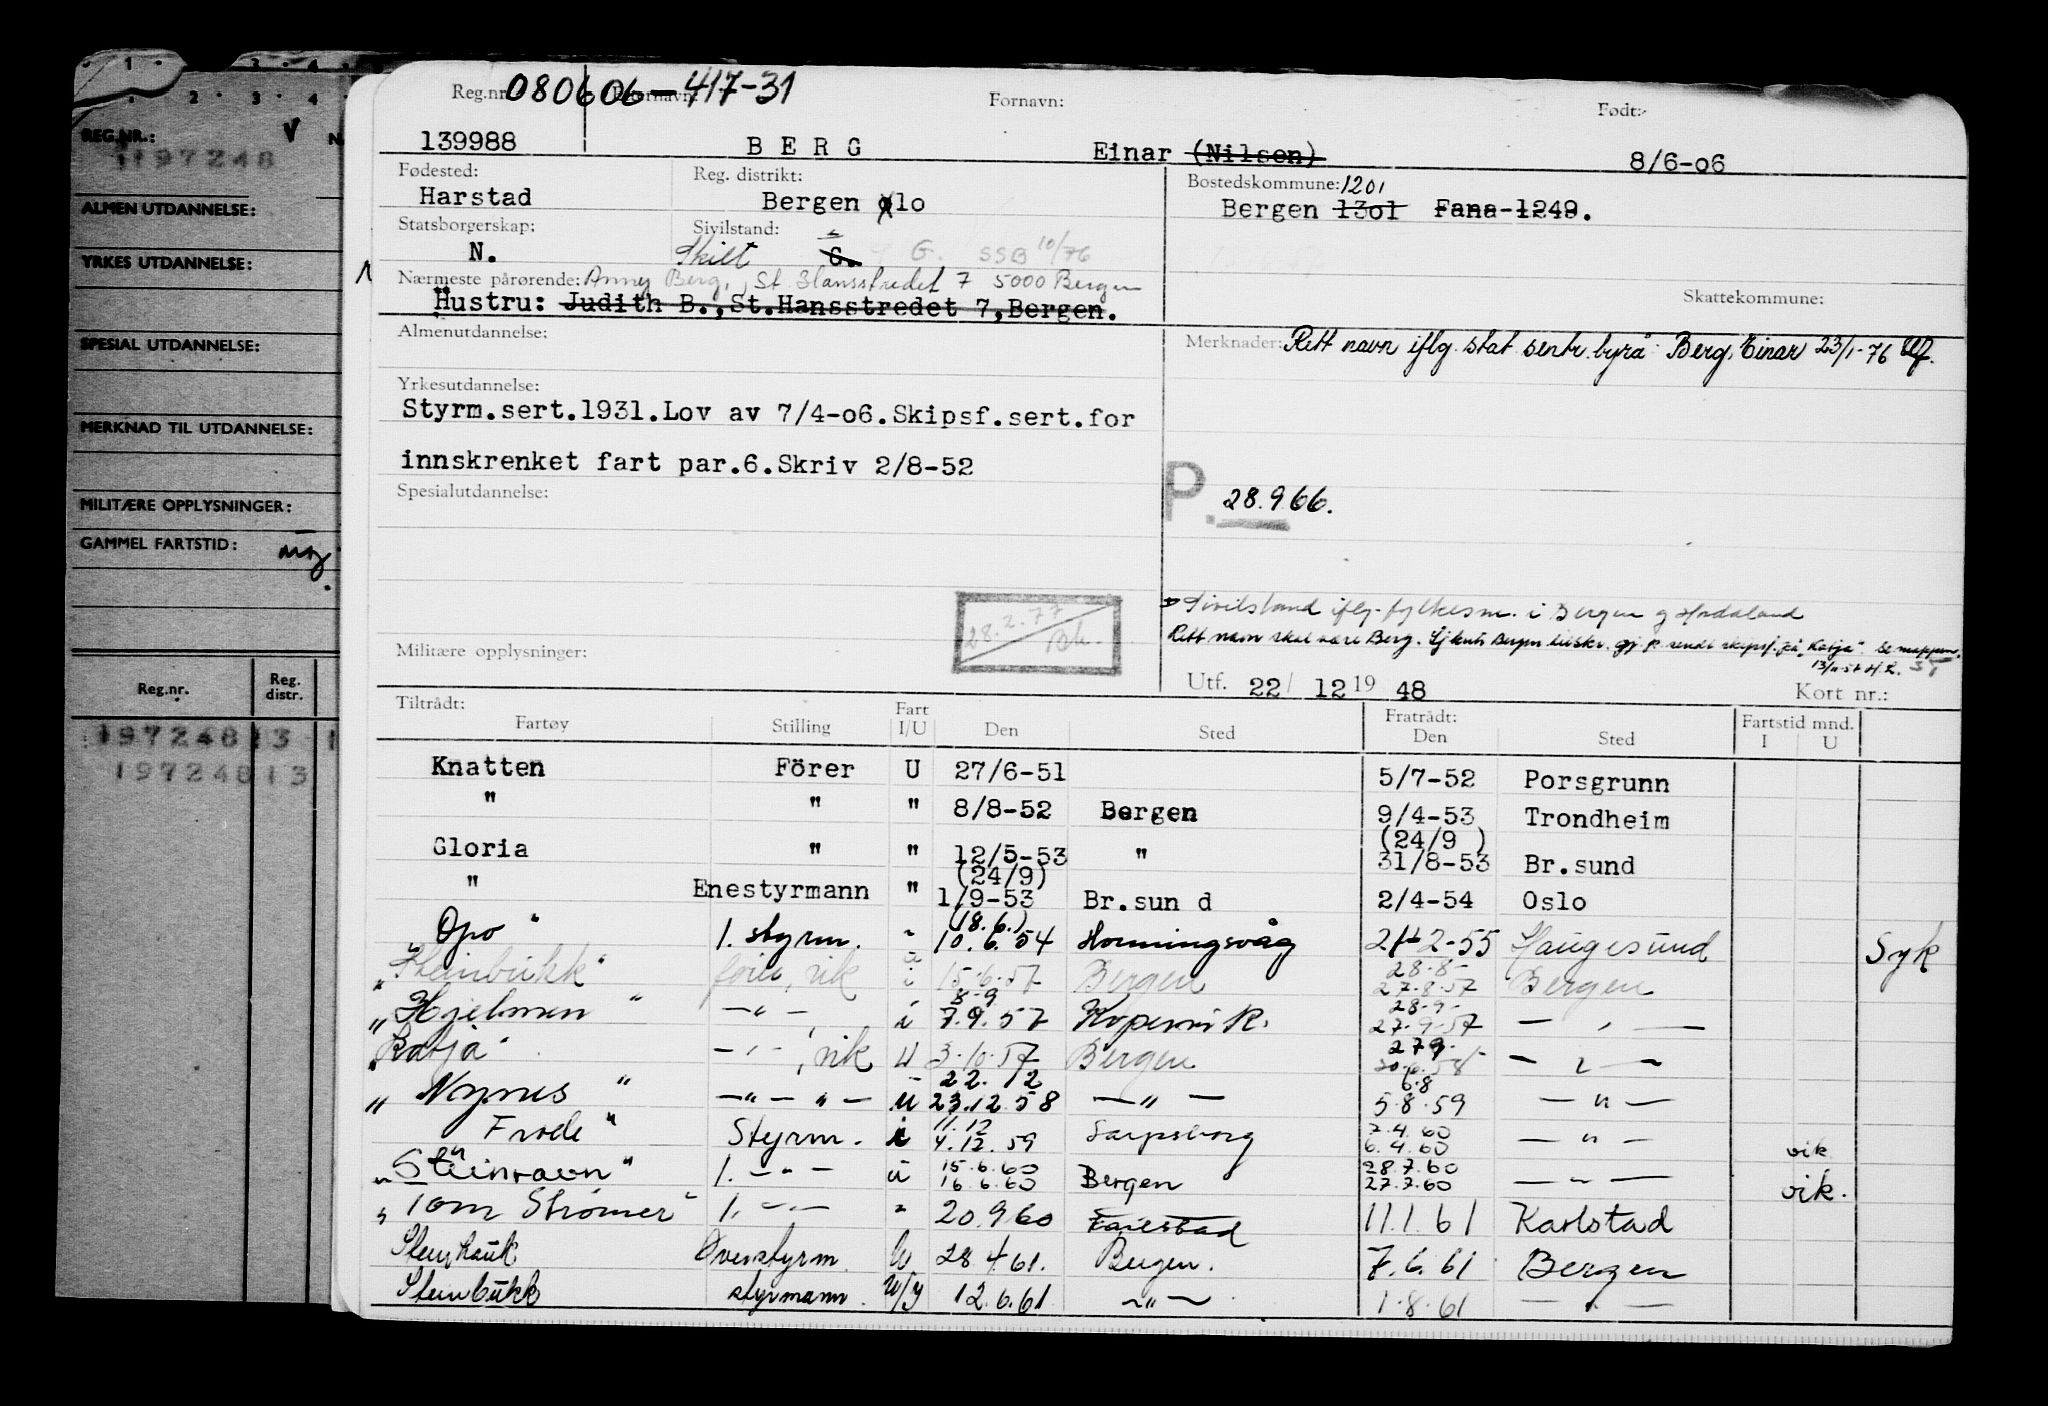 REG.NR.: V N
1197248
ALMEN UTDANNELSE:
YRKES UTDANNELSE:
SPESIAL UTDANNELSE:
MERKNAD TIL UTDANNELSE:
MILITÆRE OPPLYSNINGER:
GAMMEL FARTSTID:
Reg.nr. Reg. distr.
197248 13 1
197248 13
Reg.nr. 080606-417-31 Fornavn: Født:
139988 BERG Einar (Nilsen) 8/6-06
Fødested: Reg. distrikt: Bostedskommune: 1201
Harstad Bergen olo Bergen 13ol Fana-1249.
Statsborgerskap: Sivilstand:
N. Skilt G. G. SSB 10/76
Nærmeste pårørende: Anny Berg, St. Hansstredet 7 5000 Bergen
Hustru: Judith B.,St.Hansstredet 7,Bergen. Skattekommune:
Almenutdannelse: Merknader: Rett navn iflg. stat. sentr. byrå: Berg, Einar 23/1-76
Yrkesutdannelse:
Styrm.sert.1931.Lov av 7/4-o6.Skipsf.sert.for
innskrenket fart par.6.Skriv 2/8-52
Spesialutdannelse: P. 28.9.66.
28.2.77
Sivilstand iflg. fylkesm. i Bergen og Hordaland
Rett navn skal være Berg. Sj.kont. Bergen tilskr. gj. p. sendt skipsf. på "Katja". Se mappen.
Militære opplysninger:
Utf. 22/ 12 19 48 Kort nr.:
Tiltrådt: Fart Fratrådt: Fartstid mnd.
Fartøy Stilling I/U Den Sted Den Sted I U
Knatten Förer U 27/6-51 5/7-52 Porsgrunn
" " " 8/8-52 Bergen 9/4-53 Trondheim
(24/9 )
Gloria " " 12/5-53 " 31/8-53 Br.sund
(24/9)
" Enestyrmann " 1/9-53 Br.sun d 2/4-54 Oslo
(18.6.)
Opo " 1. styrm. " 10.6.54 Honningsvåg 2-55 Haugesund Syk
28.8
"Steinbukk" förer, vik i 15.6.57 Bergen 27.8.57 Bergen
8-9 28-9-
"Hjelmen " -"- i 7.9.57 Kopervik. 27-9-57 - " -
279-
"Katja" -"-, vik U 3.10.57 Bergen - " -
22. 12 6.8
" " -"-"- u 23.12.58 -"- 5.8.59 -"-
11.12 7.4.60
Frode " Styrm. i 4.12.59 Sarpsborg 6.4.60 -"- vik
15.6.60 28.7.60
"Steinravn" 1. -"- u 16.6.60 Bergen 27.7.60 -"- vik.
"Tom Strömer" 1. -"- " 20.9.60 11.1.61 Karlstad
Steinhauk Överstyrm. U 28.4.61. Bergen. 7.6.61 Bergen
Steinbukk styrmann. 12.6.61 -"- 1.8.61 -"-